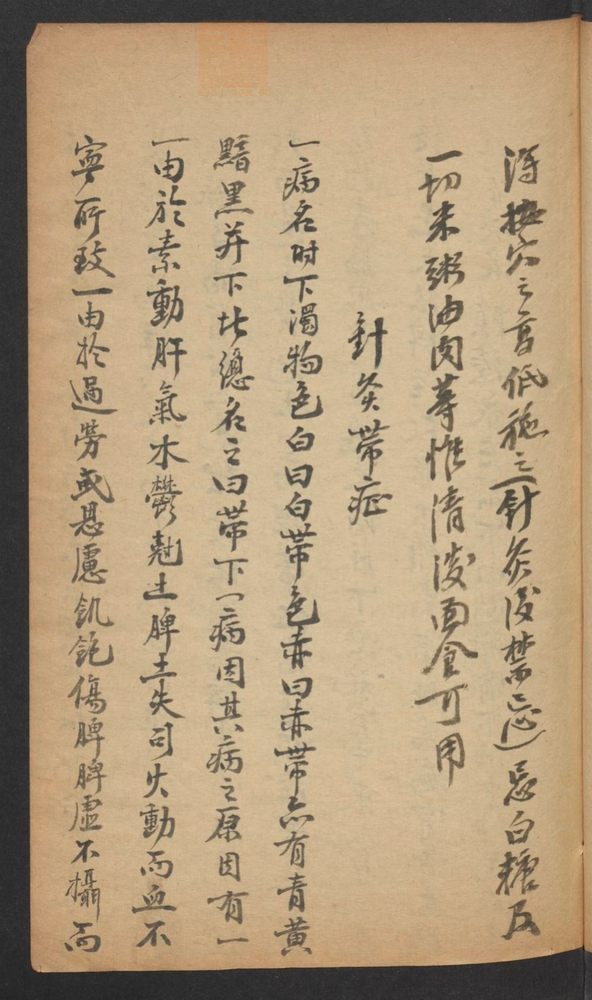 得極穴之高低施之針灸後禁忌忌白糖及
一切米粥油肉等惟清淡面食可用
針灸帶症
一病名时下濁物色白曰白帶色赤曰赤帶亦有青黃
黯黑并下此總名之曰帶下一病因其病之原因有一
一由於素動肝氣木鬱尅土脾土失司火動而血不
寧所致一由於過勞或思慮飢飽傷脾脾虛不攝而